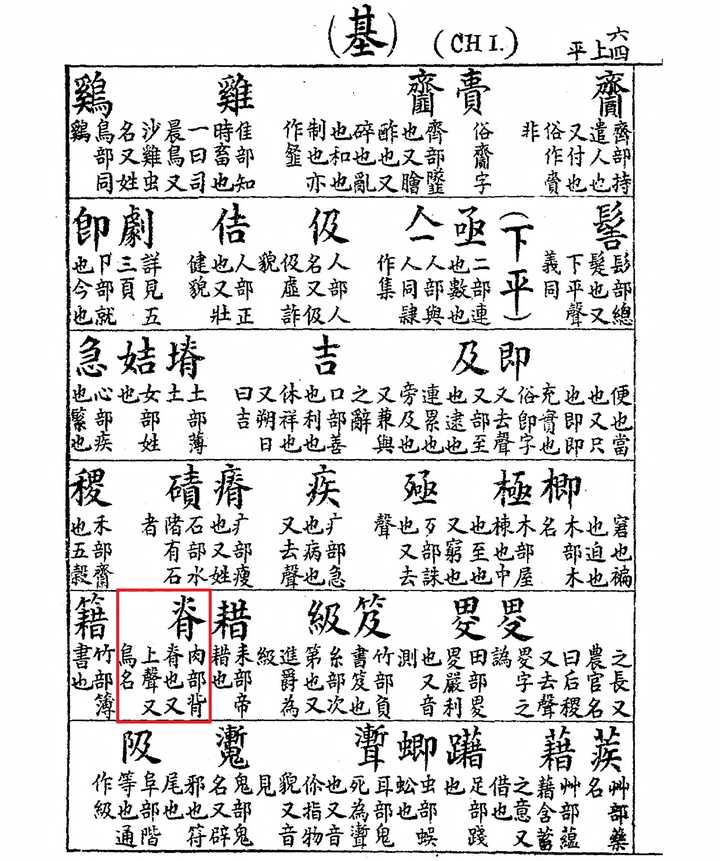 (基)
(CHI.)
上平
六四
齎
齊部持
遣人也
又付也
俗作賫
非
賷
俗齎字
齏
也又膾
酢也又
碎也亂
也和也
制也亦
雞
隹部知
時畜也
一曰司
晨鳥又
沙雞虫
名又姓
鷄
鳥部同
髻
髟部總
髮也又
下平聲
義同
(下平)
亟
二部連
也數也
亼
人部與
人同隷
作集
伋
人部人
名又伋
伋虛詐
貌
佶
人部正
也又壯
健貌
劇
詳見五
三頁
卽
卩部就
也今也
便也當
也又只
也即即
充實也
即
俗即字
又去聲
及
又部至
也逮也
連累也
旁及也
又兼與
之辭
吉
口部善
也利也
休祥也
又朔日
曰吉
塉
土部薄
土
姞
女部姓
也
急
心部疾
也緊也
窘也褊
也迫也
楖
木部木
名
極
木部屋
棟也中
也至也
又窮也
殛
歹部誅
也又去
聲
疾
疒部急
也病也
又去聲
瘠
疒部瘦
也又姓
磧
石部水
陼有石
者
稷
禾部齋
也五穀
之長又
農官名
曰后稷
又去聲
畟
畟字之
譌
畟
田部畟
畟嚴利
也又音
測
笈
竹部負
書笈也
級
糸部次
第也又
進爵為
級
耤
耒部帝
耤也
脊
肉部背
脊也又
上聲又
鳥名
籍
竹部簿
書也
蒺
艸部藥
名
藉
艸部蘊
藉含蓄
之意又
借也
躤
足部踐
也
蝍
虫部蜈
蚣也
聻
耳部鬼
死為聻
也又音
你指物
貌又音
見
魙
鬼部鬼
名又辟
邪也符
尾也
阪
阜部階
等也通
作級